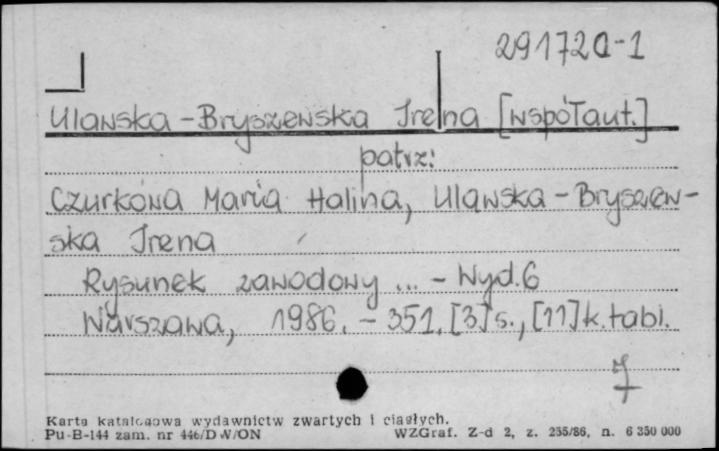 291720-1
Ulawska-Bryszewska Irena [współaut.]
patrz:
Czurkowa Maria Halina, Ulawska-Bryszew-
ska Irena
Rysunek zawodowy ... - Wyd. 6
Warszawa, 1986. - 351, [3] s., [11] k. tabl.
7
Karta katalogowa wydawnictw zwartych i ciągłych.
Pu-B-144 zam. nr 446/DW/ON WZGraf. Z-d 2, z. 235/86, n. 6 350 000